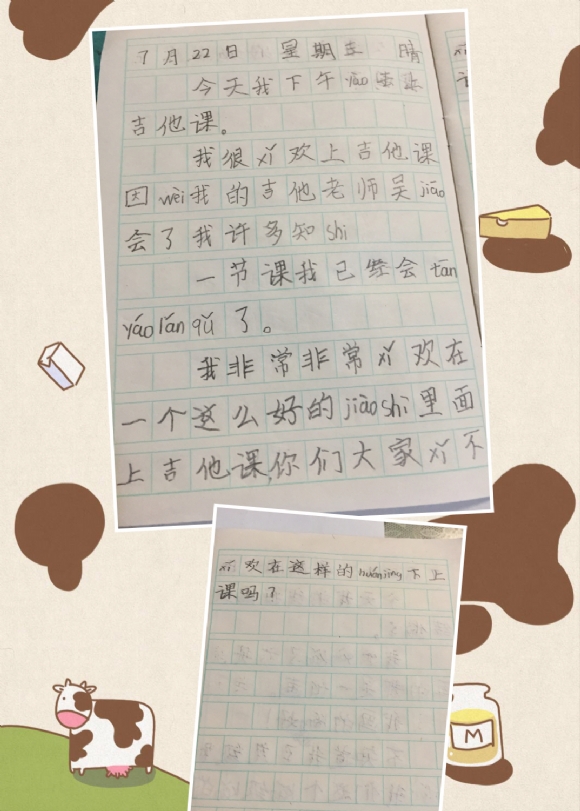 7月22日 星期五 晴
今天我下午yào
吉他课。
我很xǐ欢上吉他课
因wèi我的吉他老师吴jiāo
会了我许多知shi
一节课我已经会tán
yáo lán qǔ了。
我非常非常xǐ欢在
一个这么好的jiào shi里面
上吉他课,你们大家xǐ不
xǐ欢在这样的huánjìng下上
课吗？
M